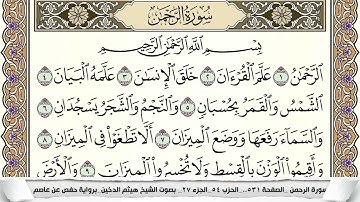 سُورَةُ الرَّحْمَٰن
بِسْمِ اللَّهِ الرَّحْمَٰنِ الرَّحِيمِ
الرَّحْمَٰنُ ١ عَلَّمَ الْقُرْءَانَ ٢ خَلَقَ الْإِنسَٰنَ ٣ عَلَّمَهُ الْبَيَانَ ٤
الشَّمْسُ وَالْقَمَرُ بِحُسْبَانٍ ٥ وَالنَّجْمُ وَالشَّجَرُ يَسْجُدَانِ ٦
وَالسَّمَاءَ رَفَعَهَا وَوَضَعَ الْمِيزَانَ ٧ أَلَّا تَطْغَوْا فِي الْمِيزَانِ ٨
وَأَقِيمُوا الْوَزْنَ بِالْقِسْطِ وَلَا تُخْسِرُوا الْمِيزَانَ ٩ وَالْأَرْضَ
سورة الرحمن _الصفحة ٥٣١_ الحزب ٥٤_ الجزء ٢٧_ بصوت الشيخ هيثم الدخين_ برواية حفص عن عاصم